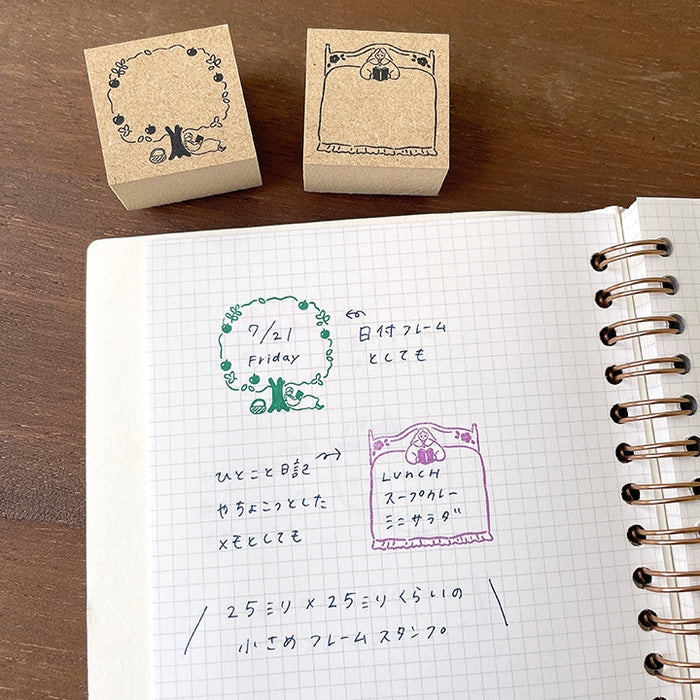 7/21
Friday
日付フレーム
としても
ひとこと日記
やちょこっとした
メモとしても
LUNCH
スープカレー
ミニサラダ
25ミリ×25ミリくらいの
小さめフレームスタンプ